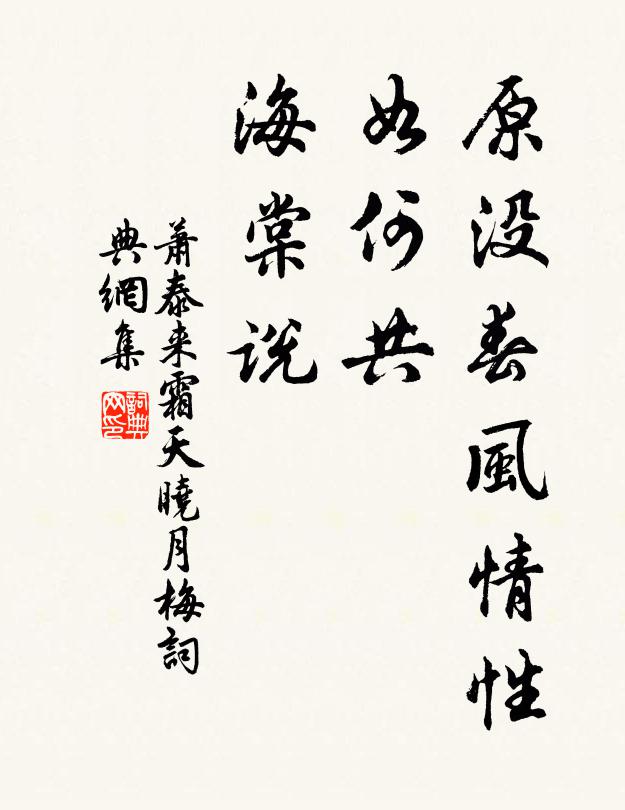 原没春風情性
如何共
海棠説
蕭泰来霜天曉月梅詞
典網集
詞典
网印